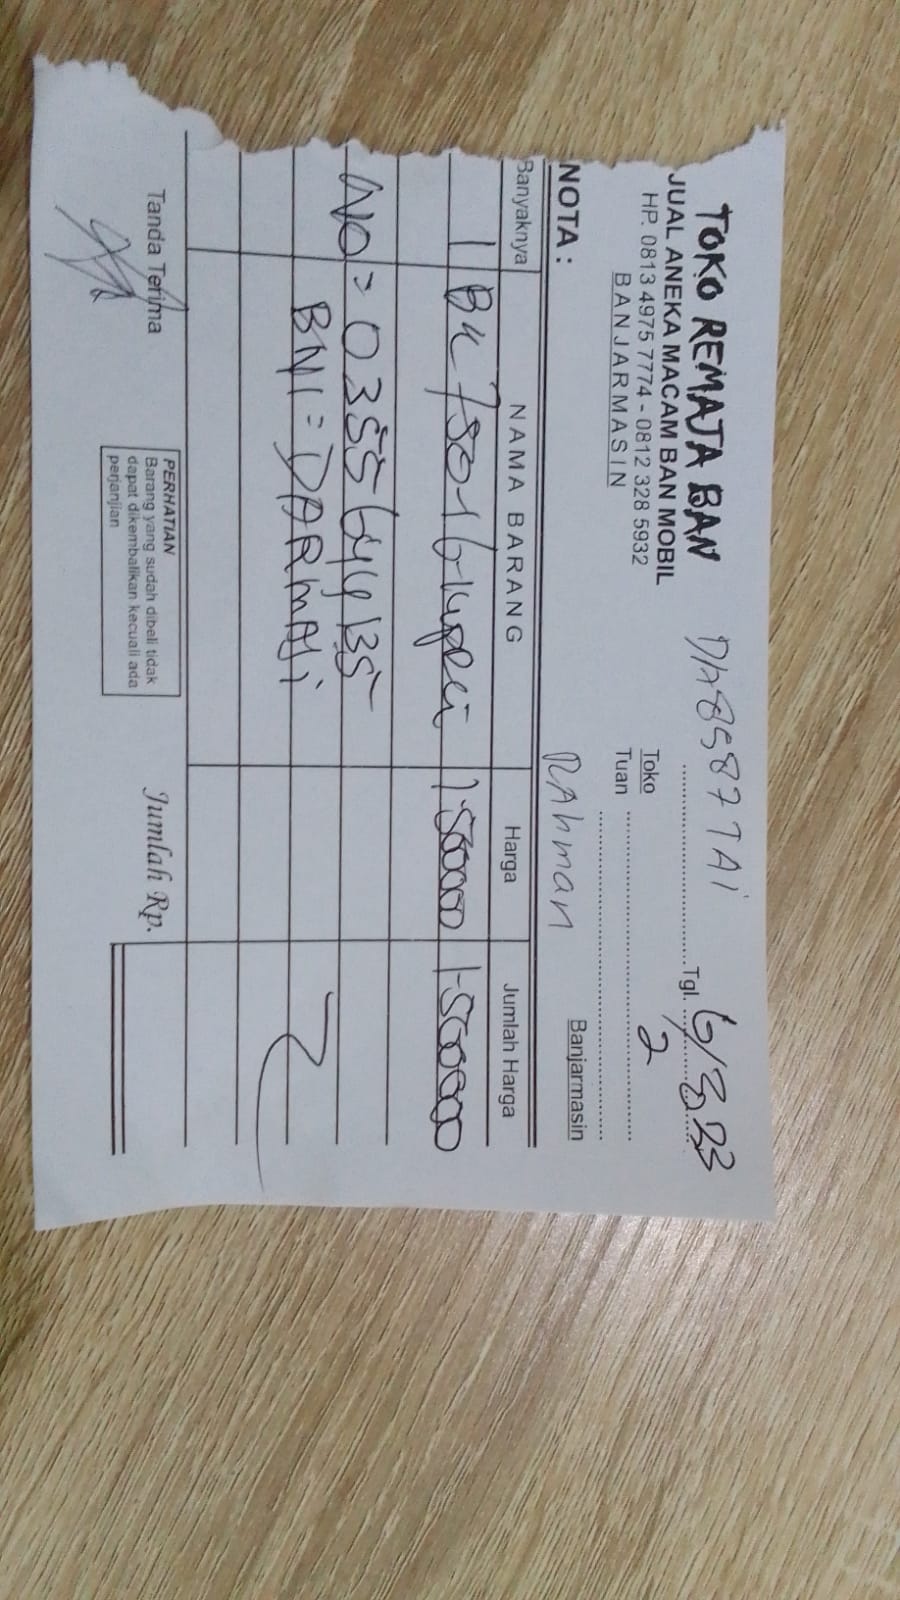 TOKO REMAJA BAN
JUAL ANEKA MACAM BAN MOBIL
HP. 0813 4975 7774 - 0812 328 5932
BANJARMASIN
DA 8587 TAi
Tgl. 6/3 23
2
Toko
Tuan
Rahman
Banjarmasin
NOTA :
Banyaknya NAMA BARANG Harga Jumlah Harga
1 BK 750-16 1.500000 1.500000
NO = 0355644135
BNI = DARMAJi
Tanda Terima
PERHATIAN
Barang yang sudah dibeli tidak
dapat dikembalikan kecuali ada
perjanjian
Jumlah Rp.